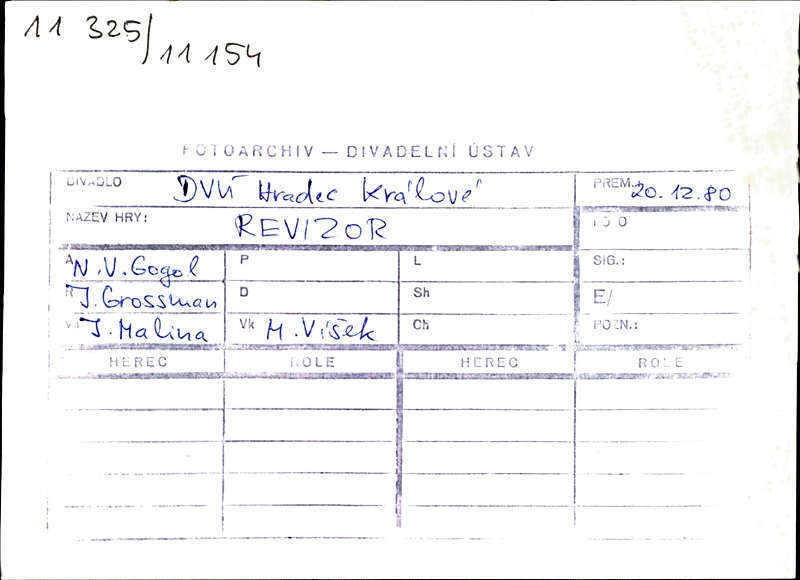 11 325/
11 154
FOTOARCHIV — DIVADELNÍ ÚSTAV
DIVADLO DVÚ Hradec Králové PREM.: 20.12.80
NÁZEV HRY: REVIZOR FOTO
A N.V.Gogol P L SIG.:
R J.Grossman D Sh E/
V J.Malina Vk M.Víšek Ch POZN.:
HEREC ROLE HEREC ROLE